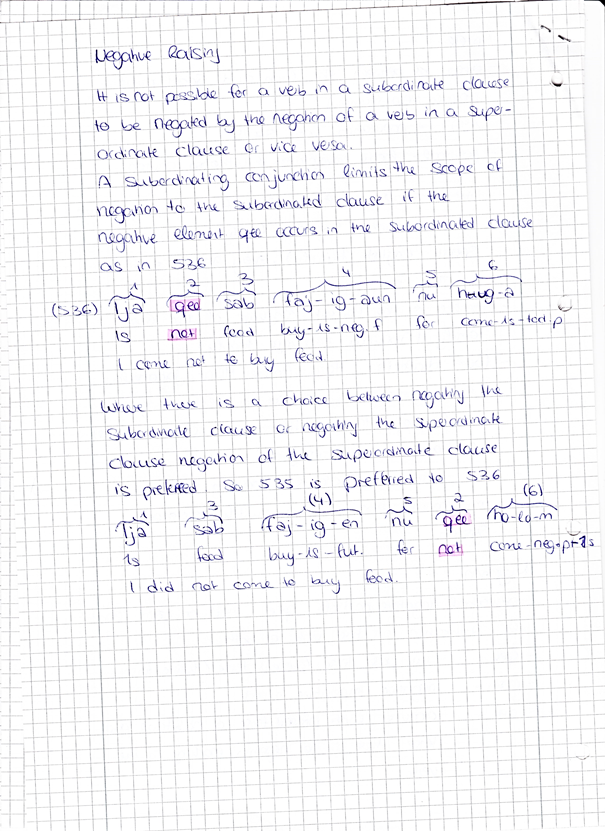 Negative Raising
It is not possible for a verb in a subordinate clause
to be negated by the negation of a verb in a super-
ordinate clause or vice versa.
A subordinating conjunction limits the scope of
negation to the subordinated clause if the
negative element qee occurs in the subordinated clause
as in 536
1 2 3 4 5 6
(536) Ija qee sab faj-ig-aun nu
1s not food buy-1s-neg.f for come-1s-tod.p
I come not to buy food.
Where there is a choice between negating the
subordinate clause or negating the superordinate
clause negation of the superordinate clause
is preferred. So 535 is preferred to 536
1 3 (4) 5 2 (6)
Ija sab faj-ig-en nu qee ho-lo-m
1s food buy-1s-fut. for not come-neg.p-1s
I did not come to buy food.